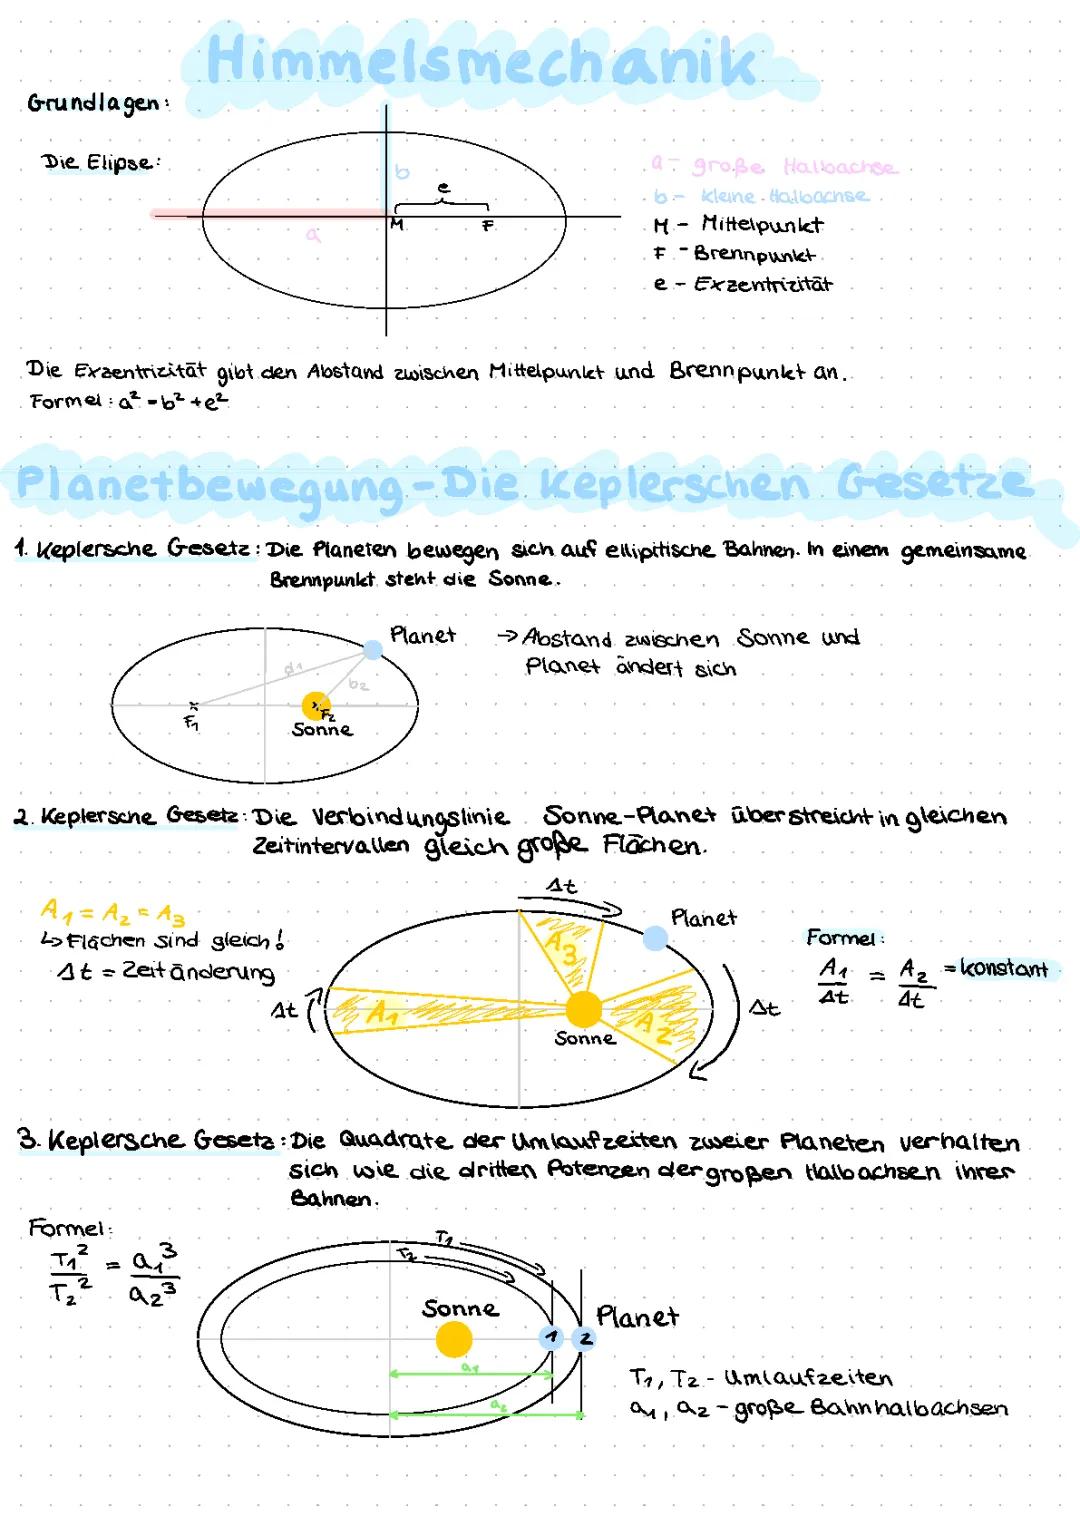 Himmelsmechanik
Grundlagen:
Die Elipse:
b
e
a
M
F
a - große Halbachse
b - kleine Halbachse
M - Mittelpunkt
F - Brennpunkt
e - Exzentrizität
Die Exzentrizität gibt den Abstand zwischen Mittelpunkt und Brennpunkt an.
Formel: a² = b² + e²
Planetbewegung - Die Keplerschen Gesetze
1. Keplersche Gesetz: Die Planeten bewegen sich auf ellipitische Bahnen. In einem gemeinsame
Brennpunkt steht die Sonne.
Planet
→ Abstand zwischen Sonne und
Planet ändert sich
d1
b2
F1
F2
Sonne
2. Keplersche Gesetz: Die Verbindungslinie Sonne-Planet überstreicht in gleichen
Zeitintervallen gleich große Flächen.
Δt
A1 = A2 = A3
↳ Flächen sind gleich!
Δt = Zeitänderung
Planet
A3
Δt
A1
A2
Sonne
Δt
Formel:
A1/Δt = A2/Δt = konstant
3. Keplersche Gesetz: Die Quadrate der Umlaufzeiten zweier Planeten verhalten
sich wie die dritten Potenzen der großen Halbachsen ihrer
Bahnen.
Formel:
T1²/T2² = a1³/a2³
T1
T2
Sonne
1
2
Planet
a1
a2
T1, T2 - Umlaufzeiten
a1, a2 - große Bahnhalbachsen